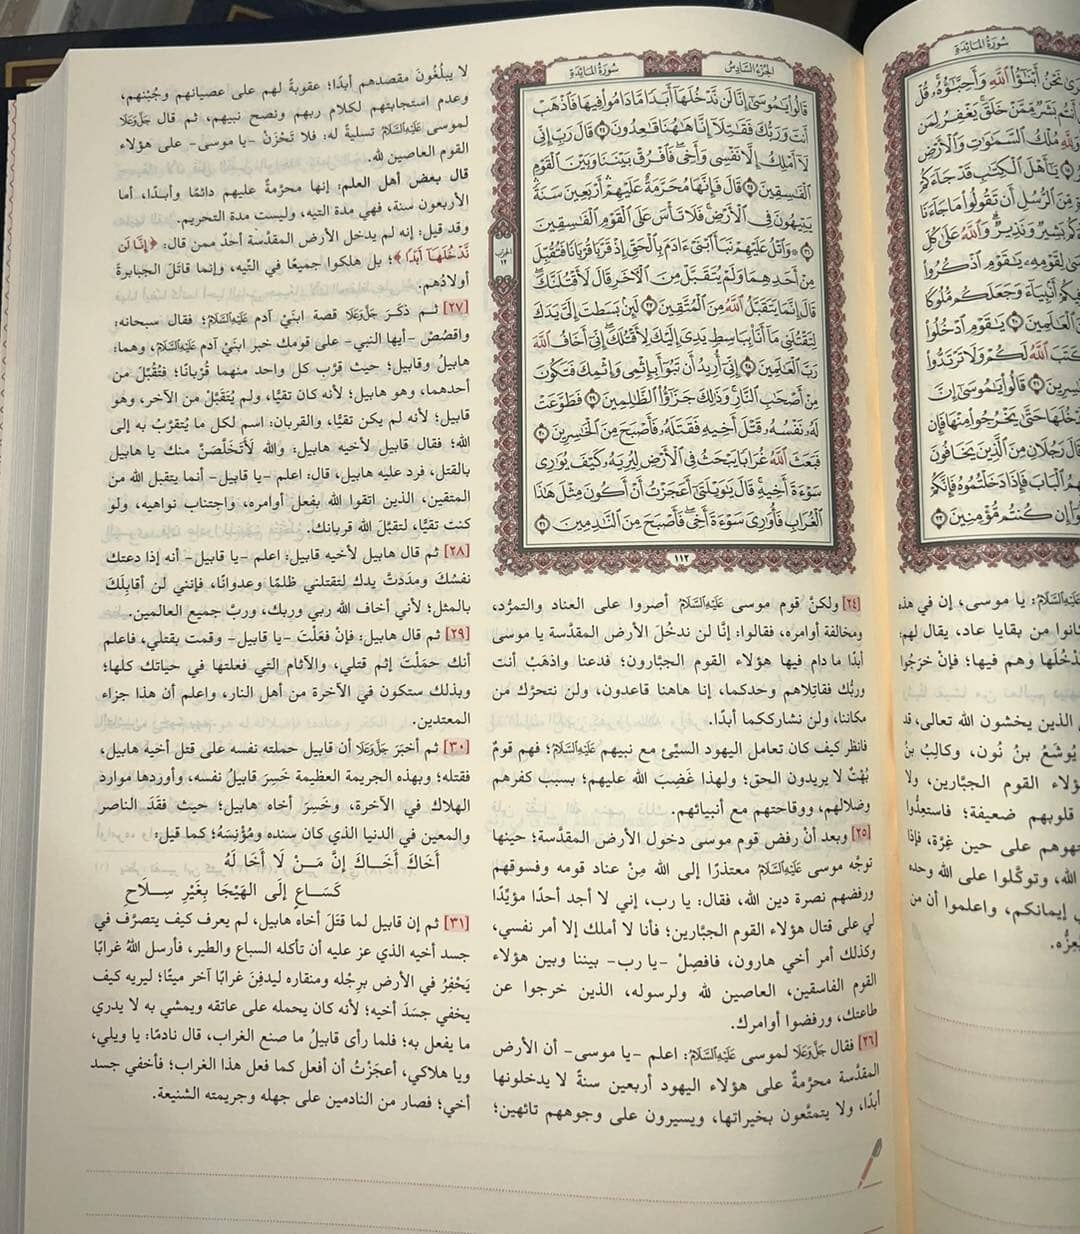 سُورَةُ المَائِدَةِ
الجُزْءُ السَّادِسُ
سُورَةُ المَائِدَةِ
قَالُوا۟ يَـٰمُوسَىٰٓ إِنَّا لَن نَّدْخُلَهَآ أَبَدًا مَّا دَامُوا۟ فِيهَا فَٱذْهَبْ
أَنتَ وَرَبُّكَ فَقَـٰتِلَآ إِنَّا هَـٰهُنَا قَـٰعِدُونَ ٢٤ قَالَ رَبِّ إِنِّى
لَآ أَمْلِكُ إِلَّا نَفْسِى وَأَخِى فَٱفْرُقْ بَيْنَنَا وَبَيْنَ ٱلْقَوْمِ
ٱلْفَـٰسِقِينَ ٢٥ قَالَ فَإِنَّهَا مُحَرَّمَةٌ عَلَيْهِمْ أَرْبَعِينَ سَنَةً
يَتِيهُونَ فِى ٱلْأَرْضِ فَلَا تَأْسَ عَلَى ٱلْقَوْمِ ٱلْفَـٰسِقِينَ
٢٦ ۞ وَٱتْلُ عَلَيْهِمْ نَبَأَ ٱبْنَىْ ءَادَمَ بِٱلْحَقِّ إِذْ قَرَّبَا قُرْبَانًا فَتُقُبِّلَ
مِنْ أَحَدِهِمَا وَلَمْ يُتَقَبَّلْ مِنَ ٱلْـَٔاخَرِ قَالَ لَأَقْتُلَنَّكَ
قَالَ إِنَّمَا يَتَقَبَّلُ ٱللَّهُ مِنَ ٱلْمُتَّقِينَ ٢٧ لَئِنۢ بَسَطتَ إِلَىَّ يَدَكَ
لِتَقْتُلَنِى مَآ أَنَا۠ بِبَاسِطٍ يَدِىَ إِلَيْكَ لِأَقْتُلَكَ إِنِّىٓ أَخَافُ ٱللَّهَ
رَبَّ ٱلْعَـٰلَمِينَ ٢٨ إِنِّىٓ أُرِيدُ أَن تَبُوٓأَ بِإِثْمِى وَإِثْمِكَ فَتَكُونَ
مِنْ أَصْحَـٰبِ ٱلنَّارِ وَذَٰلِكَ جَزَٰٓؤُا۟ ٱلظَّـٰلِمِينَ ٢٩ فَطَوَّعَتْ
لَهُۥ نَفْسُهُۥ قَتْلَ أَخِيهِ فَقَتَلَهُۥ فَأَصْبَحَ مِنَ ٱلْخَـٰسِرِينَ ٣٠
فَبَعَثَ ٱللَّهُ غُرَابًا يَبْحَثُ فِى ٱلْأَرْضِ لِيُرِيَهُۥ كَيْفَ يُوَٰرِى
سَوْءَةَ أَخِيهِ قَالَ يَـٰوَيْلَتَىٰٓ أَعَجَزْتُ أَنْ أَكُونَ مِثْلَ هَـٰذَا
ٱلْغُرَابِ فَأُوَٰرِىَ سَوْءَةَ أَخِى فَأَصْبَحَ مِنَ ٱلنَّـٰدِمِينَ ٣١
الحزب
١٢
١١٢
[٢٤] ولكنَّ قوم موسى عَلَيْهِ السَّلَامُ أصروا على العناد والتمرُّد،
ومخالفة أوامره، فقالوا: إنَّا لن ندخُلَ الأرض المقدَّسة يا موسى
أبدًا ما دام فيها هؤلاء القوم الجبَّارون؛ فدعنا واذهَبْ أنت
وربُّك فقاتِلاهم وحدكما، إنا هاهنا قاعدون، ولن نتحرَّك من
مكاننا، ولن نشارككما أبدًا.
فانظر كيف كان تعامل اليهود السيّئ مع نبيهم عَلَيْهِ السَّلَامُ؛ فهم قومٌ
بُهْتٌ لا يريدون الحق؛ ولهذا غَضِبَ الله عليهم؛ بسبب كفرهم
وضلالهم، ووقاحتهم مع أنبيائهم.
[٢٥] وبعد أنْ رفض قوم موسى دخول الأرض المقدَّسة؛ حينها
توجَّه موسى عَلَيْهِ السَّلَامُ معتذرًا إلى الله مِنْ عناد قومه وفسوقهم
ورفضهم نصرة دين الله، فقال: يا رب، إني لا أجد أحدًا مؤيِّدًا
لي على قتال هؤلاء القوم الجبَّارين؛ فأنا لا أملك إلا أمر نفسي،
وكذلك أمر أخي هارون، فافصِلْ -يا رب- بيننا وبين هؤلاء
القوم الفاسقين، العاصين لله ولرسوله، الذين خرجوا عن
طاعتك، ورفضوا أوامرك.
[٢٦] فقال جَلَّ وَعَلَا لموسى عَلَيْهِ السَّلَامُ: اعلم -يا موسى- أن الأرض
المقدَّسة محرَّمةٌ على هؤلاء اليهود أربعين سنةً لا يدخلونها
أبدًا، ولا يتمتَّعون بخيراتها، ويسيرون على وجوههم تائهين؛
لا يبلُغُونَ مقصدهم أبدًا؛ عقوبةً لهم على عصيانهم وجُبْنهم،
وعدم استجابتهم لكلام ربهم ونصح نبيهم، ثم قال جَلَّ وَعَلَا
لموسى عَلَيْهِ السَّلَامُ تسليةً له: فلا تَحْزَنْ -يا موسى- على هؤلاء
القوم العاصين لله.
قال بعض أهل العلم: إنها محرَّمةٌ عليهم دائمًا وأبدًا، أما
الأربعون سنة، فهي مدة التيه، وليست مدة التحريم.
وقد قيل: إنه لم يدخل الأرض المقدَّسة أحدٌ ممن قال: ﴿إِنَّا لَن
نَّدْخُلَهَآ أَبَدًا﴾؛ بل هلكوا جميعًا في التِّيه، وإنما قاتَلَ الجبابرةَ
أولادُهم.
[٢٧] ثم ذكَرَ جَلَّ وَعَلَا قصة ابنَيْ آدم عَلَيْهِ السَّلَامُ؛ فقال سبحانه:
واقصُصْ -أيها النبي- على قومك خبر ابنَيْ آدم عَلَيْهِ السَّلَامُ، وهما:
هابيلُ وقابيل؛ حيث قرَّب كل واحد منهما قُرْبانًا؛ فتُقُبِّلَ من
أحدهما، وهو هابيل؛ لأنه كان تقيًّا، ولم يُتَقَبَّلْ من الآخر، وهو
قابيل؛ لأنه لم يكن تقيًّا، والقربان: اسم لكل ما يُتقرَّبُ به إلى
الله؛ فقال قابيل لأخيه هابيل: والله لَأَتخلَّصَنَّ منك يا هابيل
بالقتل، فرد عليه هابيل، قال: اعلم -يا قابيل- أنما يتقبل الله من
المتقين، الذين اتقوا الله بفعل أوامره، واجتناب نواهيه، ولو
كنت تقيًّا، لتقبَّلَ الله قربانك.
[٢٨] ثم قال هابيل لأخيه قابيل: اعلم -يا قابيل- أنه إذا دعتك
نفسُك ومدَدتَّ يدك لتقتلني ظلمًا وعدوانًا، فإنني لن أقابِلَكَ
بالمثل؛ لأني أخاف الله ربي وربك، وربَّ جميع العالمين.
[٢٩] ثم قال هابيل: فإنْ فعَلْتَ -يا قابيل- وقمت بقتلي، فاعلم
أنك حمَلْتَ إثم قتلي، والآثام التي فعلتها في حياتك كلها؛
وبذلك ستكون في الآخرة من أهل النار، واعلم أن هذا جزاء
المعتدين.
[٣٠] ثم أخبَرَ جَلَّ وَعَلَا أن قابيل حملته نفسه على قتل أخيه هابيل،
فقتله؛ وبهذه الجريمة العظيمة خَسِرَ قابيلُ نفسه، وأوردها موارد
الهلاك في الآخرة، وخَسِرَ أخاه هابيل؛ حيث فقَدَ الناصر
والمعين في الدنيا الذي كان سنده ومُؤْنِسَهُ؛ كما قيل:
أَخَاكَ أَخَاكَ إِنَّ مَنْ لَا أَخَا لَهُ
كَسَاعٍ إِلَى الهَيْجَا بِغَيْرِ سِلَاحِ
[٣١] ثم إن قابيل لما قتَلَ أخاه هابيل، لم يعرف كيف يتصرَّف في
جسد أخيه الذي عز عليه أن تأكله السباع والطير، فأرسل اللهُ غرابًا
يَحْفِرُ في الأرض برِجْله ومنقاره ليدفِنَ غرابًا آخر ميتًا؛ ليريه كيف
يخفي جسَدَ أخيه؛ لأنه كان يحمله على عاتقه ويمشي به لا يدري
ما يفعل به؛ فلما رأى قابيلُ ما صنع الغراب، قال نادمًا: يا ويلي،
ويا هلاكي، أعجَزْتُ أن أفعل كما فعل هذا الغراب؛ فأخفي جسد
أخي؛ فصار من النادمين على جهله وجريمته الشنيعة.